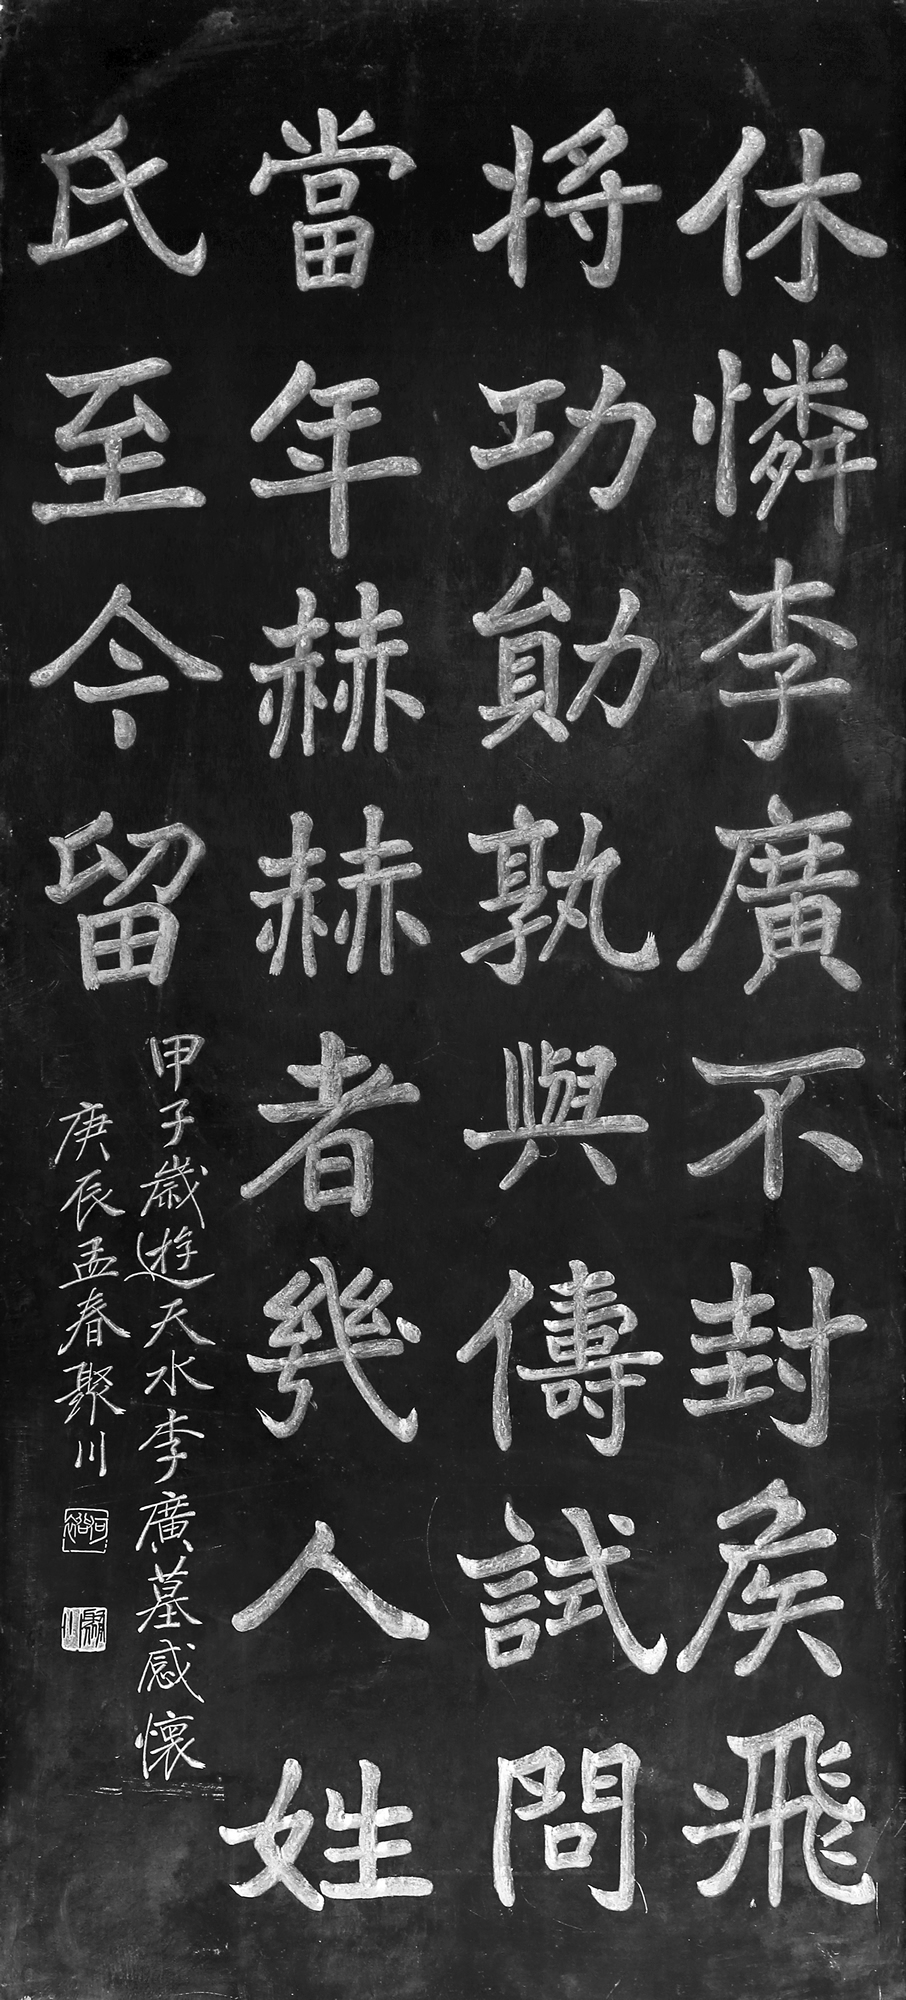 休憐李廣不封侯飛
將功勛孰與傳試問
當年赫赫者幾人姓
氏至今留
甲子歲遊天水李廣墓感懷
庚辰孟春聚川